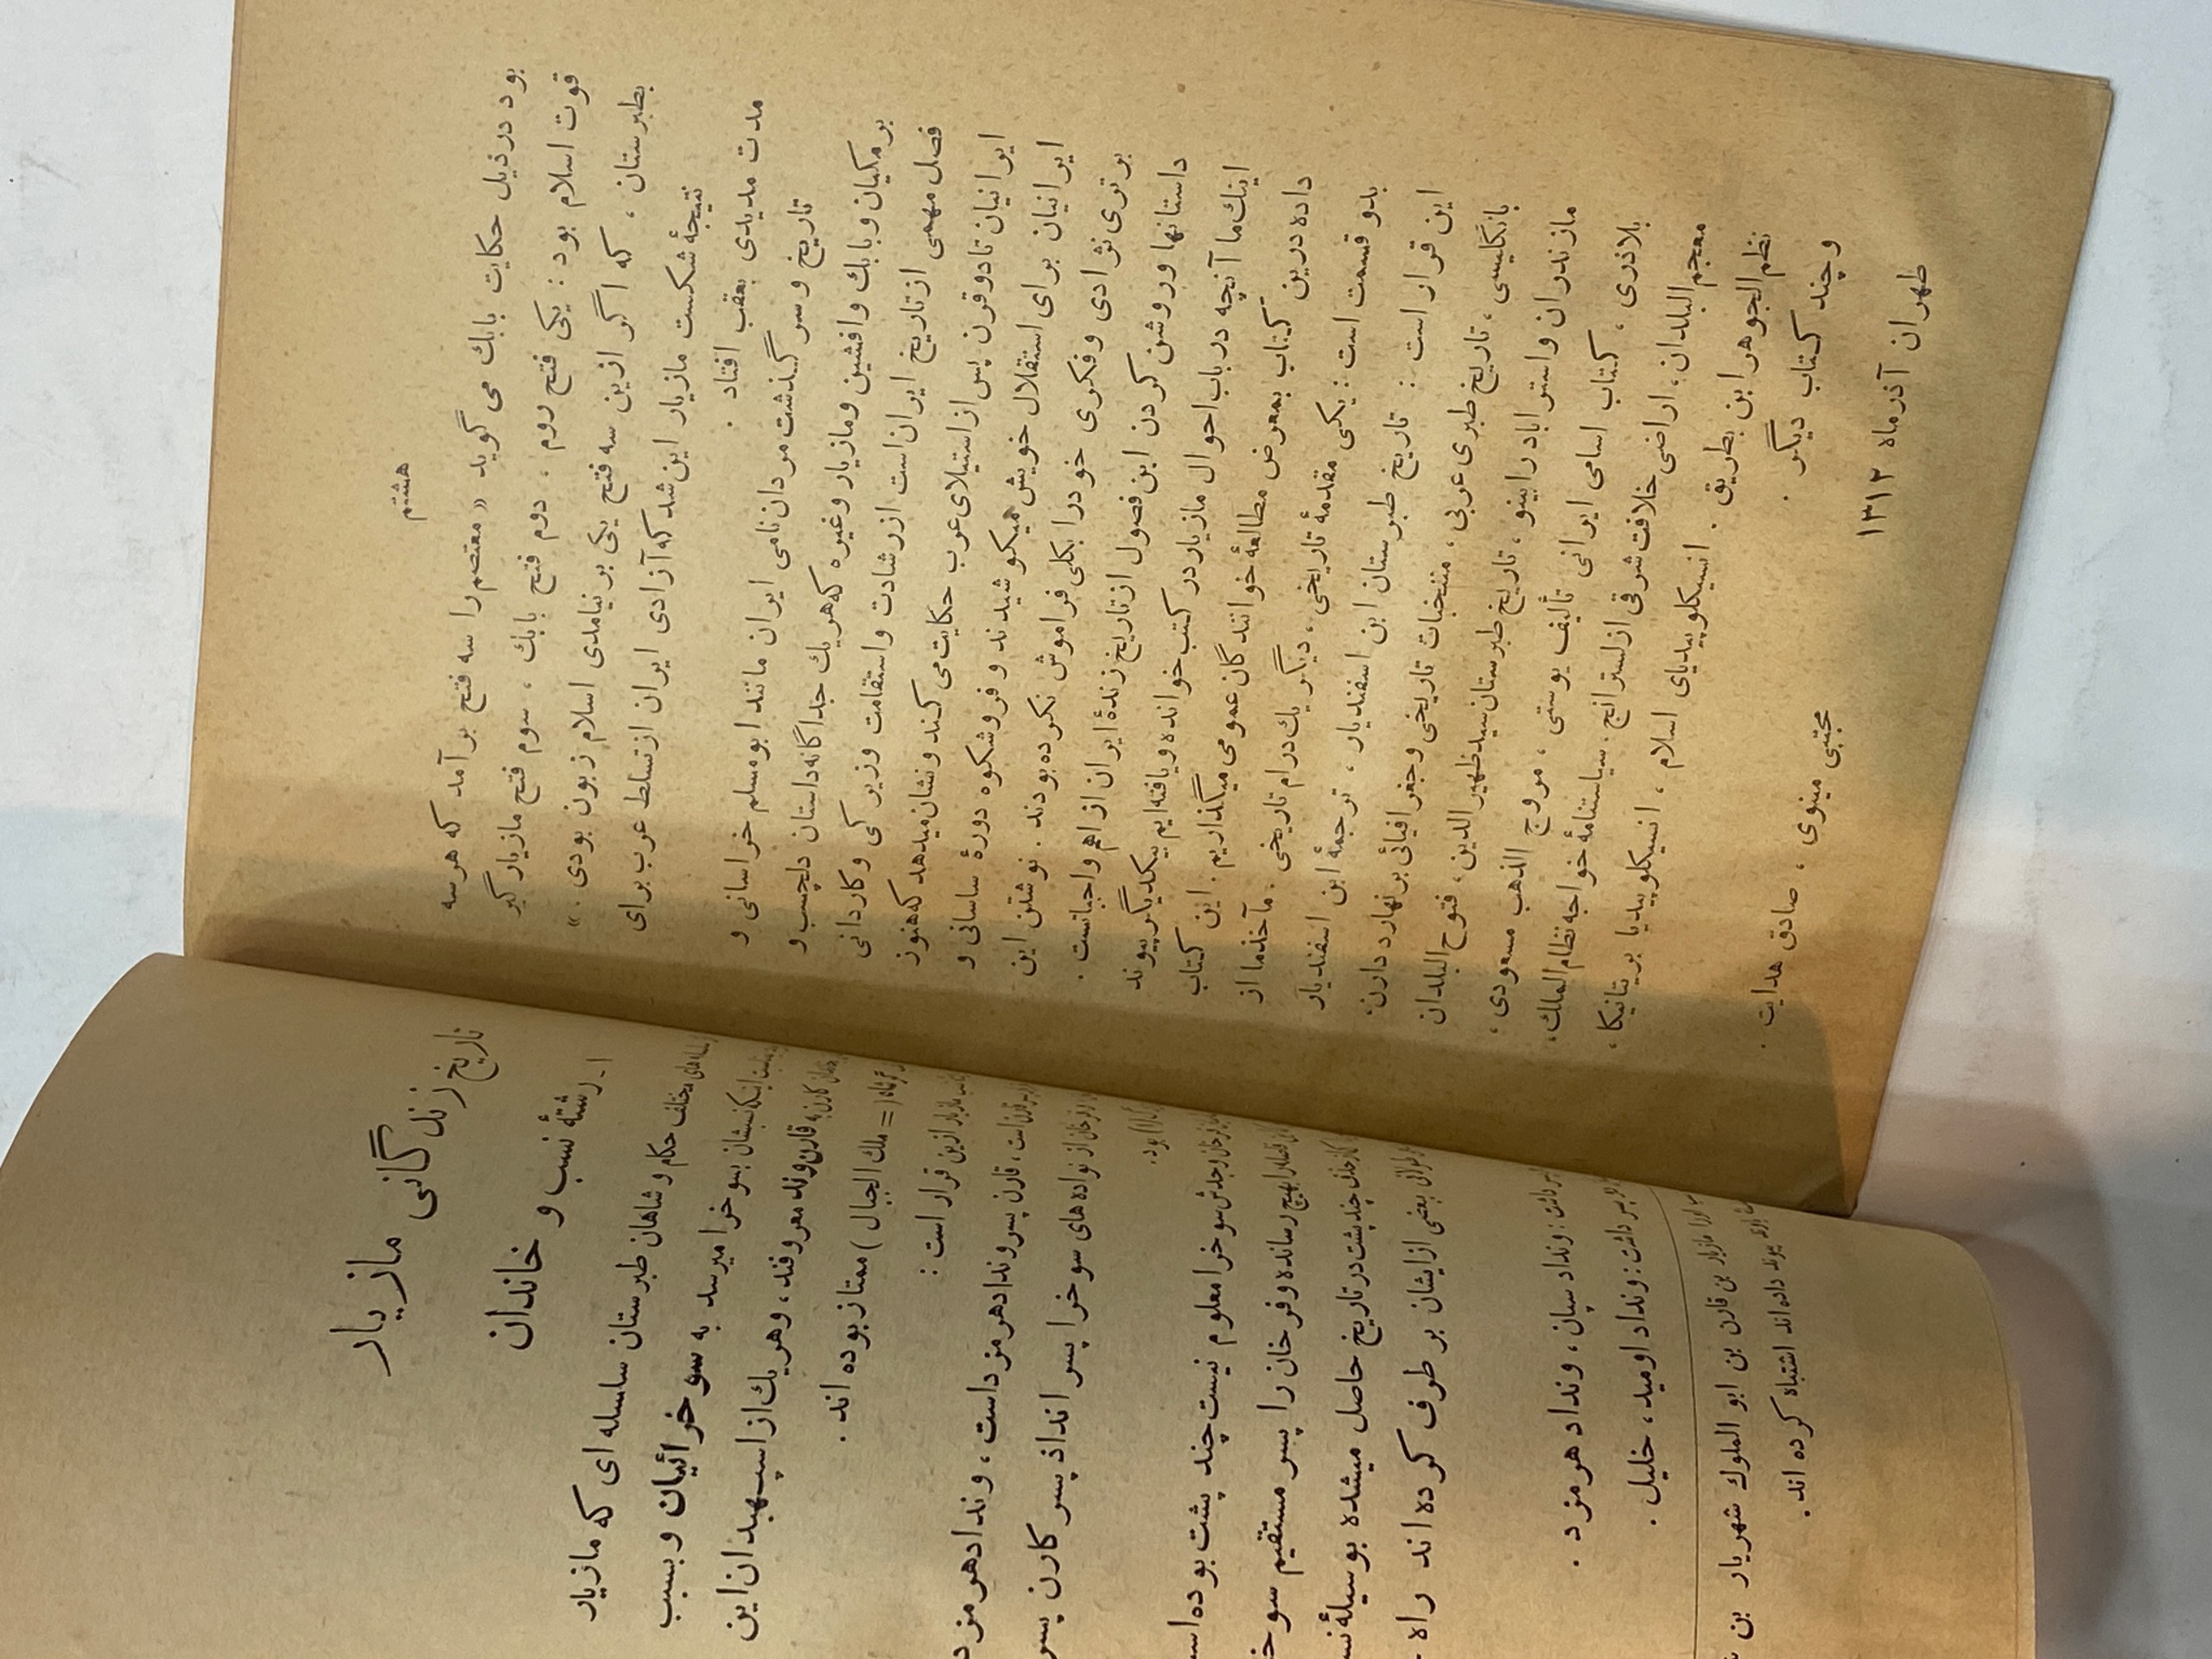 هشتم
بود در ذیل حکایت بابك می گوید « معتصم را سه فتح برآمد که هر سه
قوت اسلام بود : یکی فتح روم ، دوم فتح بابك ، سوم فتح مازیار گبر
بطبرستان ، که اگر ازین سه فتح یکی بر نیامدی اسلام زبون بودی . »
نتیجۀ شکست مازیار این شد که آزادی ایران از تسلط عرب برای
مدت مدیدی بعقب افتاد .
تاریخ و سر گذشت مردان نامی ایران مانند ابومسلم خراسانی و
برمکیان و بابك وافشین ومازیار وغیره که هریك جداگانه داستان دلچسب و
فصل مهمی از تاریخ ایران است از رشادت واستقامت وزیرکی وکاردانی
ایرانیان تا دو قرن پس از استیلای عرب حکایت می کند و نشان میدهد که هنوز
ایرانیان برای استقلال خویش میکوشیدند و فروشکوه دورۀ ساسانی و
برتری نژادی و فکری خود را بکلی فراموش نکرده بودند . نوشتن این
داستانها وروشن کردن این فصول از تاریخ زندۀ ایران از اهم واجباتست .
اینك ما آنچه درباب احوال مازیار در کتب خوانده ویافته ایم بیکدیگر پیوند
داده درین کتاب بمعرض مطالعۀ خوانندگان عمومی میگذاریم . این کتاب
بدو قسمت است : یکی مقدمۀ تاریخی ، دیگر یك درام تاریخی . مآخذ ما از
این قرار است : تاریخ طبرستان ابن اسفندیار ، ترجمۀ ابن اسفندیار
بانگلیسی ، تاریخ طبری عربی ، منتخبات تاریخی وجغرافیائی برنهارد دارن،
مازندران واستراباد رابینو ، تاریخ طبرستان سید ظهیرالدین ، فتوح البلدان
بلاذری ، کتاب اسامی ایرانی تألیف یوستی ، مروج الذهب مسعودی ،
معجم البلدان ، اراضی خلافت شرقی از لسترانج . سیاستنامۀ خواجه نظام الملك ،
نظم الجوهر ابن بطریق . انسیکلوپیدیای اسلام ، انسیکلوپیدیا بریتانیکا ،
وچند کتاب دیگر .
طهران آذرماه ۱۳۱۲
مجتبی مینوی ، صادق هدایت .
تاریخ زندگانی مازیار
۱ـ رشتۀ نسب و خاندان
سلسله ای که مازیار
مختلف حکام و شاهان طبرستان
سوخرائیان و بسبب
اینکه نسبشان بسوخرا میرسد به
قارن وند معروفند ، وهریك از اسپهبدان این
( = ملك الجبال ) ممتاز بوده اند .
مازیار ازین قرار است :
قارن است ، قارن پسر ونداد هرمزد است ، ونداد هرمزد
از نواده های سوخرا پسر انداذ پسر کارن پسر
بود .
وجدش سوخرا معلوم نیست چند پشت بوده
رسانده و فرخان را پسر مستقیم
چند پشت در تاریخ حاصل میشده بوسیلۀ
بعضی از ایشان بر طرف کرده اند راه
داشت : ونداد سپان ، ونداد هرمزد .
پسر داشت : ونداد اومید ، خلیل .
مازیار بن قارن بن ابو الملوك شهریار بن
پیوند داده اند اشتباه کرده اند .